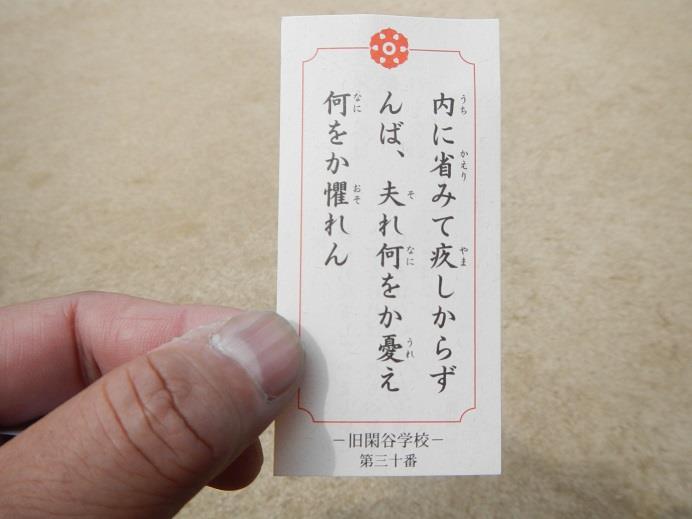 内に省みて疚しからず
んば、夫れ何をか憂え
何をか懼れん
うち
かえり
やま
そ
なに
うれ
なに
おそ
－旧閑谷学校－
第三十番